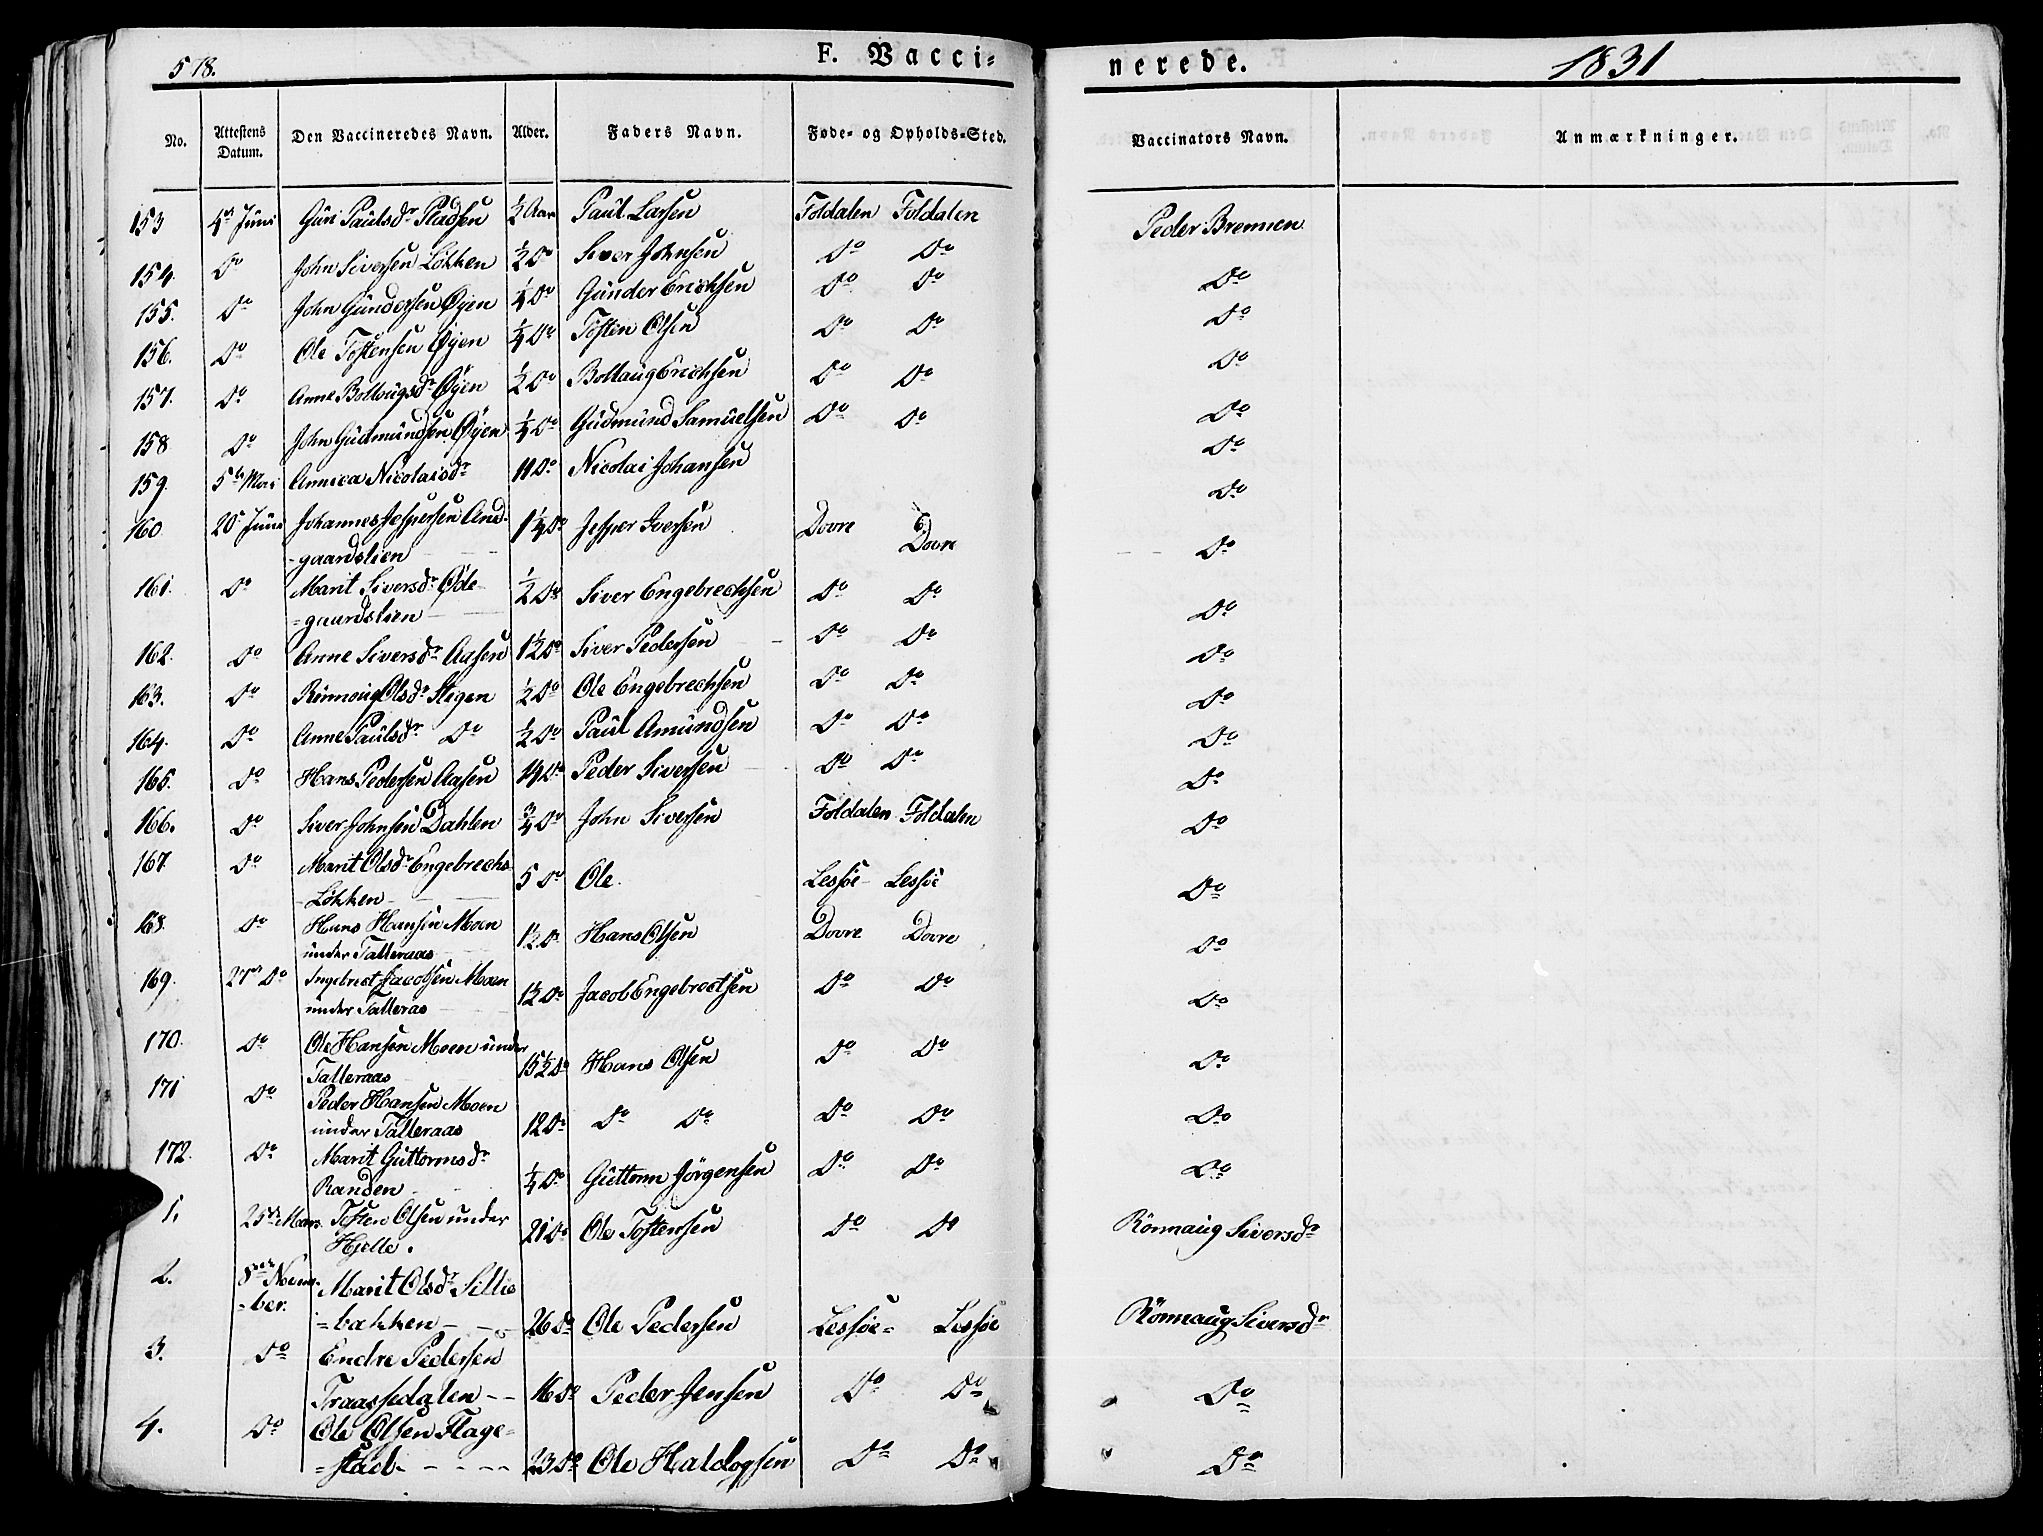 518. F. Vacci= nerede. 1831
No. Attestens Datum. Den Vaccineredes Navn. Alder. Faders Navn. Føde= og Opholds=Sted. Vaccinators Navn. Anmærkninger.
153 4de Juni Guri Paulsdr Pladsen ½ Aar Paul Larsen Foldalen Foldalen Peder Brennen
154 Do John Siversen Løkken ½ Do Siver Johnsen Do Do Do
155. Do John Gundersen Øyen ¼ Do Gunder Erichsen Do Do Do
156. Do Ole Tostensen Øyen ¼ Do Tosten Olsen Do Do Do
157. Do Anne Bottougsdr Øyen ½ Do Bottaug Erichsen Do Do Do
158 Do John Gudmundsen Øyen ¼ Do Gudmund Samuelsen Do Do Do
159. 5te Mai Annica Nicolaisdr 11 Do Nicolai Johansen Do
160 20de Juni Johannes Jespersen And=
=gaardslien 1¼ Do Jesper Iversen Dovre Dovre Do
161. Do Marit Siversdr Øde
=gaardslien ½ Do Siver Engebrechsen Do Do Do
162. Do Anne Siversdr Aasen 1½ Do Siver Pedersen Do Do Do
163. Do Rønnoug Olsdr Stegen ½ Do Ole Engebrechsen Do Do Do
164. Do Anne Paulsdr Do ½ Do Paul Amundsen Do Do Do
165. Do Hans Pedersen Aasen Do Peder Siversen Do Do Do
166. Do Siver Johnsen Dahlen ¾ Do John Siversen Foldalen Foldalen Do
167 Do Marit Olsdr Engebrechs
Løkken 5 Do Ole. Lessøe Lessøe Do
168. Do Hans Hansen Moen
under Talleraas 1½ Do Hans Olsen Dovre Dovre Do
169. 27de Do Ingebret Jacobsen Moen
under Talleras 1½ Do Jacob Engebretsen Do Do Do
170. Do Ole Hansen Moen under
Talleraas 15½ Do Hans Olsen Do Do Do
171 Do Peder Hansen Moen
under Talleraas 12 Do Do Do Do Do Do
172. Do Marit Guttormsdr
Randen ¼ Do Guttorm Jörgensen Do Do Do
1. 25de Mars Tosten Olsen under
Hjelle. 21 Do Ole Tostensen Do Do Rönnaug Siversdr
2. 8de Novem=
=ber. Marit Olsdr Sillie
=bakken 26 Do Ole Pedersen Lessøe= Lessøe Rönnaug Siversdr
3. Do Endre Pedersen
Traassedalen 16 Do Peder Jensen Do Do Do
4. Do Ole Olsen Flage=
=stad 23 Do Ole Haldogsen Do Do Do